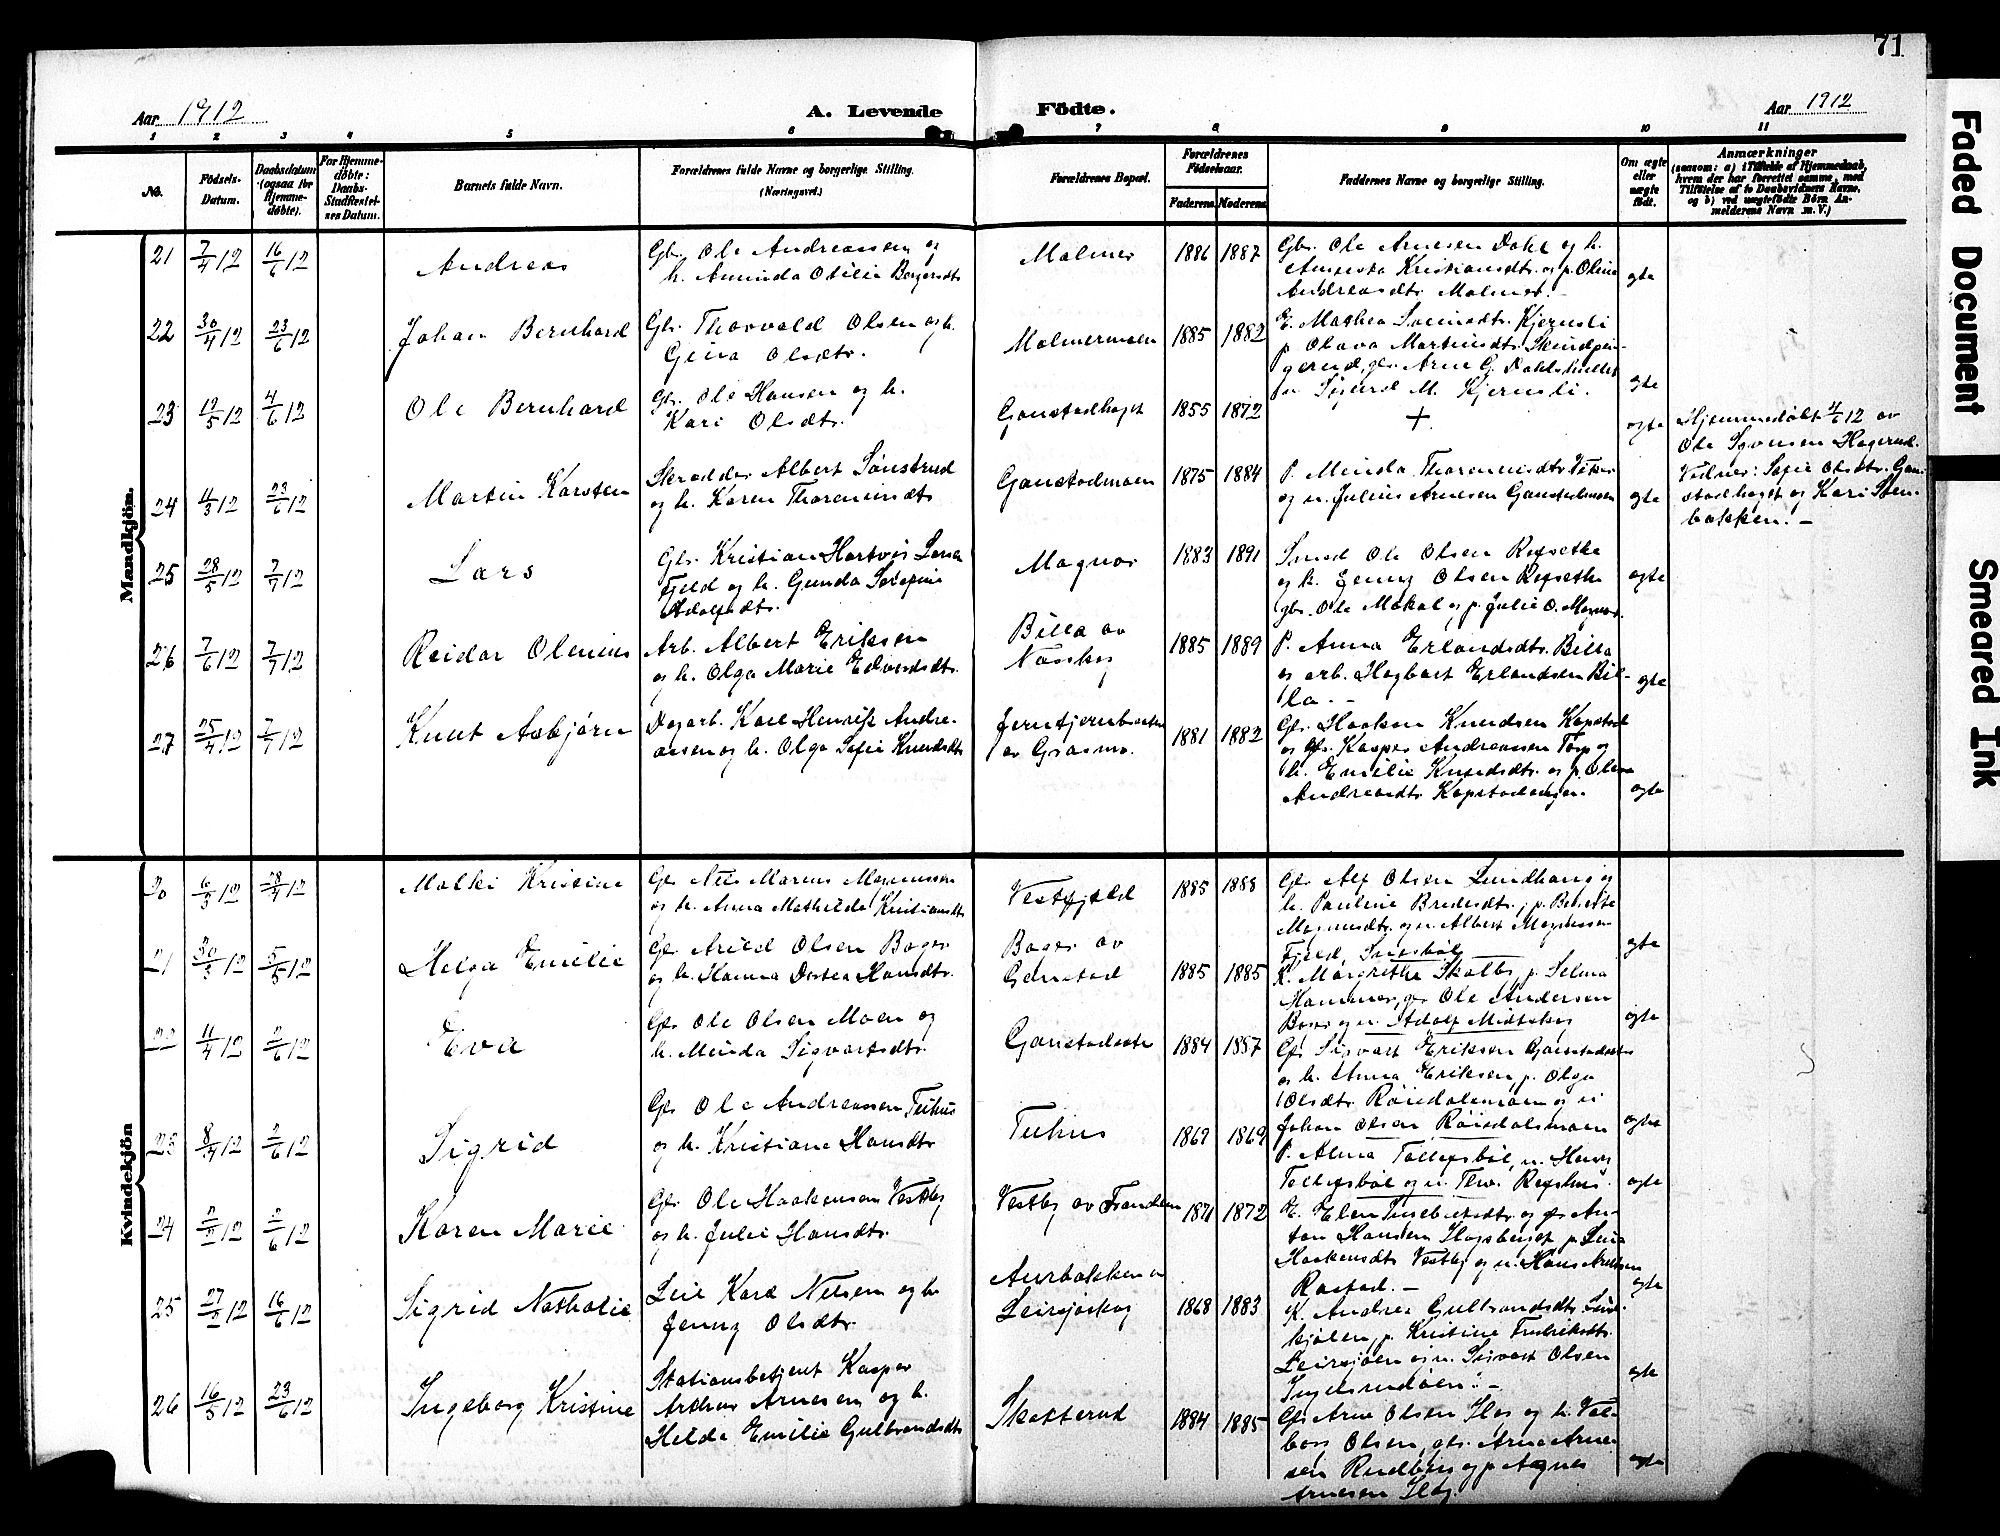 71
Aar 1912
A. Levende
Födte.
Aar 1912
1 2 3 4 5 6 7 8 9 10 11
No.
Födsels-
Datum.
Daabsdatum
(ogsaa for
Hjemme-
døbte).
For Hjemme-
døbte:
Daabs-
Stadfæstel-
ses Datum.
Barnets fulde Navn.
Forældrenes fulde Navne og borgerlige Stilling.
(Næringsvei.)
Forældrenes Bopæl.
Forældrenes
Fødselsaar.
Faderens. Moderens.
Faddernes Navne og borgerlige Stilling.
Om ægte
eller
uægte
født.
Anmærkninger
(saasom: a) i Tilfælde af Hjemmedaab,
hvem der har forrettet samme, med
Tilføielse af to Daabsvidners Navne,
og b) ved uægtefødte Børn An-
melderens Navn m. V.)
Mandkjön.
21 7/4 12 16/6 12 Andreas
Gbr. Ole Andreassen og
h. Aminda Otilie Borgersdtr
Malmer 1886 1887
Gbr. Ole Arnesen Dahl og h.
Kristiansdtr. og p. Oline
Andreasdtr. Malmer.
ægte
22 30/4 12 23/6 12 Johan Bernhard
Gbr. Thorvald Olsen og h.
Gina Olsdtr.
Malmermoen 1885 1882
E. Mathea Svensdtr. Kjernsli
p. Olava Martinsdtr.
gerud, gbr. Arne G.
u. Sigurd M. Kjernsli.
ægte
23 12/5 12 4/6 12 Ole Bernhard
Gbr. Ole Hansen og h.
Kari Olsdtr.
Ganstadhaget 1855 1872
+
ægte
Hjemmedøbt 4/6 12 av
Ole Syversen Hagerud.
Vidner: Sofie Olsdtr. Gan-
stadhaget og Kari Sten-
bakken. –
24 4/3 12 23/6 12 Martin Karsten
Skrædder Albert Sønsterud
og h. Karen Thorvensdtr
Ganstadmoen 1875 1884
P. Minda
og u. Julius Arnesen Ganstadmoen
ægte
25 28/5 12 7/7 12 Lars
Gbr. Kristian Hartvig Larsen
Fjeld og h. Gunda Josefine
Adolfsdtr.
Magnor 1883 1891
Smed Ole Olsen Refsethe
og h. Jenny Olsen Refsethe
gbr. Ole og p. Julie O. Magnor.
ægte
26 7/6 12 7/7 12 Reidar Olenius
Arb. Albert Eriksen
og h. Olga Marie Edvardsdtr.
Billa av
Næsskog
1885 1889
P. Anna Erlandsdtr. Billa
og arb. Hagbart Erlandsen Bil-
la. –
ægte
27 25/4 12 7/7 12 Knut Asbjørn
Dagarb. Karl Henrik Andre-
assen og h. Olga Sofie Knudsdtr
av Grasmo.
1881 1882
Gbr. Haakon Knudsen Kapstad
og gbr. Kasper Andreassen Torp og
h. Emilie Knudsdtr. og p. Olava
Andreasdtr. Kapstadengen
ægte
Kvindekjön
20 6/3 12 28/4 12 Malki Kristine
Gbr. Nils Marius Magnussen
og h. Anna Mathilde Kristiansdtr
Vestfjeld 1885 1888
Gbr. Alf Olsen Lundhaug og
h. Pauline Bredesdtr., p. Berethe
Magnusdtr. og u. Albert Magnussen
Fjeld,
ægte
21 30/3 12 5/5 12 Helga Emilie
Gbr. Arild Olsen Bager
og h. Hanna Dortea Hansdtr.
Bager av
Gonstad
1885 1885
K. Margrethe Skotby, p. Selma
Hammer, gbr. Ole Andersen
Bager og u. Adolf Midtskog
ægte
22 11/4 12 2/6 12 Eva
Gbr. Ole Olsen Moen og
h. Minda Sigvartsdtr.
Ganstadsæter 1884 1887
Gbr. Sigvart Eriksen Ganstadsæter
og h. Anna Eriksen, p. Olga
Olsdtr. Røisdalsmoen og u.
Johan Olsen Røisdalsmoen
ægte
23 8/4 12 2/6 12 Sigrid
Gbr. Ole Andreassen Tuhus
og h. Kristiane Hansdtr.
Tuhus 1869 1869
P. Alma Tollefsbøl, u. Hans
Tollefsbøl og u. Thv. Refshus.
ægte
24 2/2 12 2/6 12 Karen Marie
Gbr. Ole Haakensen Vestby
og h. Julie Hansdtr.
Vestby av 1871 1872
E. Elen Engebretsdtr. og gbr. An-
ton Hansen Hagberget p. Lina
Haakensdtr. Vestby og u. Hans Arelsen
Rastad. –
ægte
25 27/2 12 16/6 12 Sigrid Nathalie
Leil. Karl Nilsen og h.
Jenny Olsdtr.
Aurbakken av
Leirsjøskog
1868 1883
K. Andrea Gulbrandsdtr.
kjølen, p. Kristine Fredriksdtr.
Leirsjøen og u. Sigvart Olsen
Ingelsrudøen. –
ægte
26 16/5 12 23/6 12 Ingeborg Kristine
Stationsbetjent Kasper
Arthur Arnesen og h.
Hilda Emilie Gulbrandsdtr.
Skotterud 1884 1885
Gbr. Arne Olsen og h. Val-
borg Olsen, gbr. Arne Arne-
sen Rudberg og p. Agnes
Arnesen
ægte
Faded Document
Smeared Ink